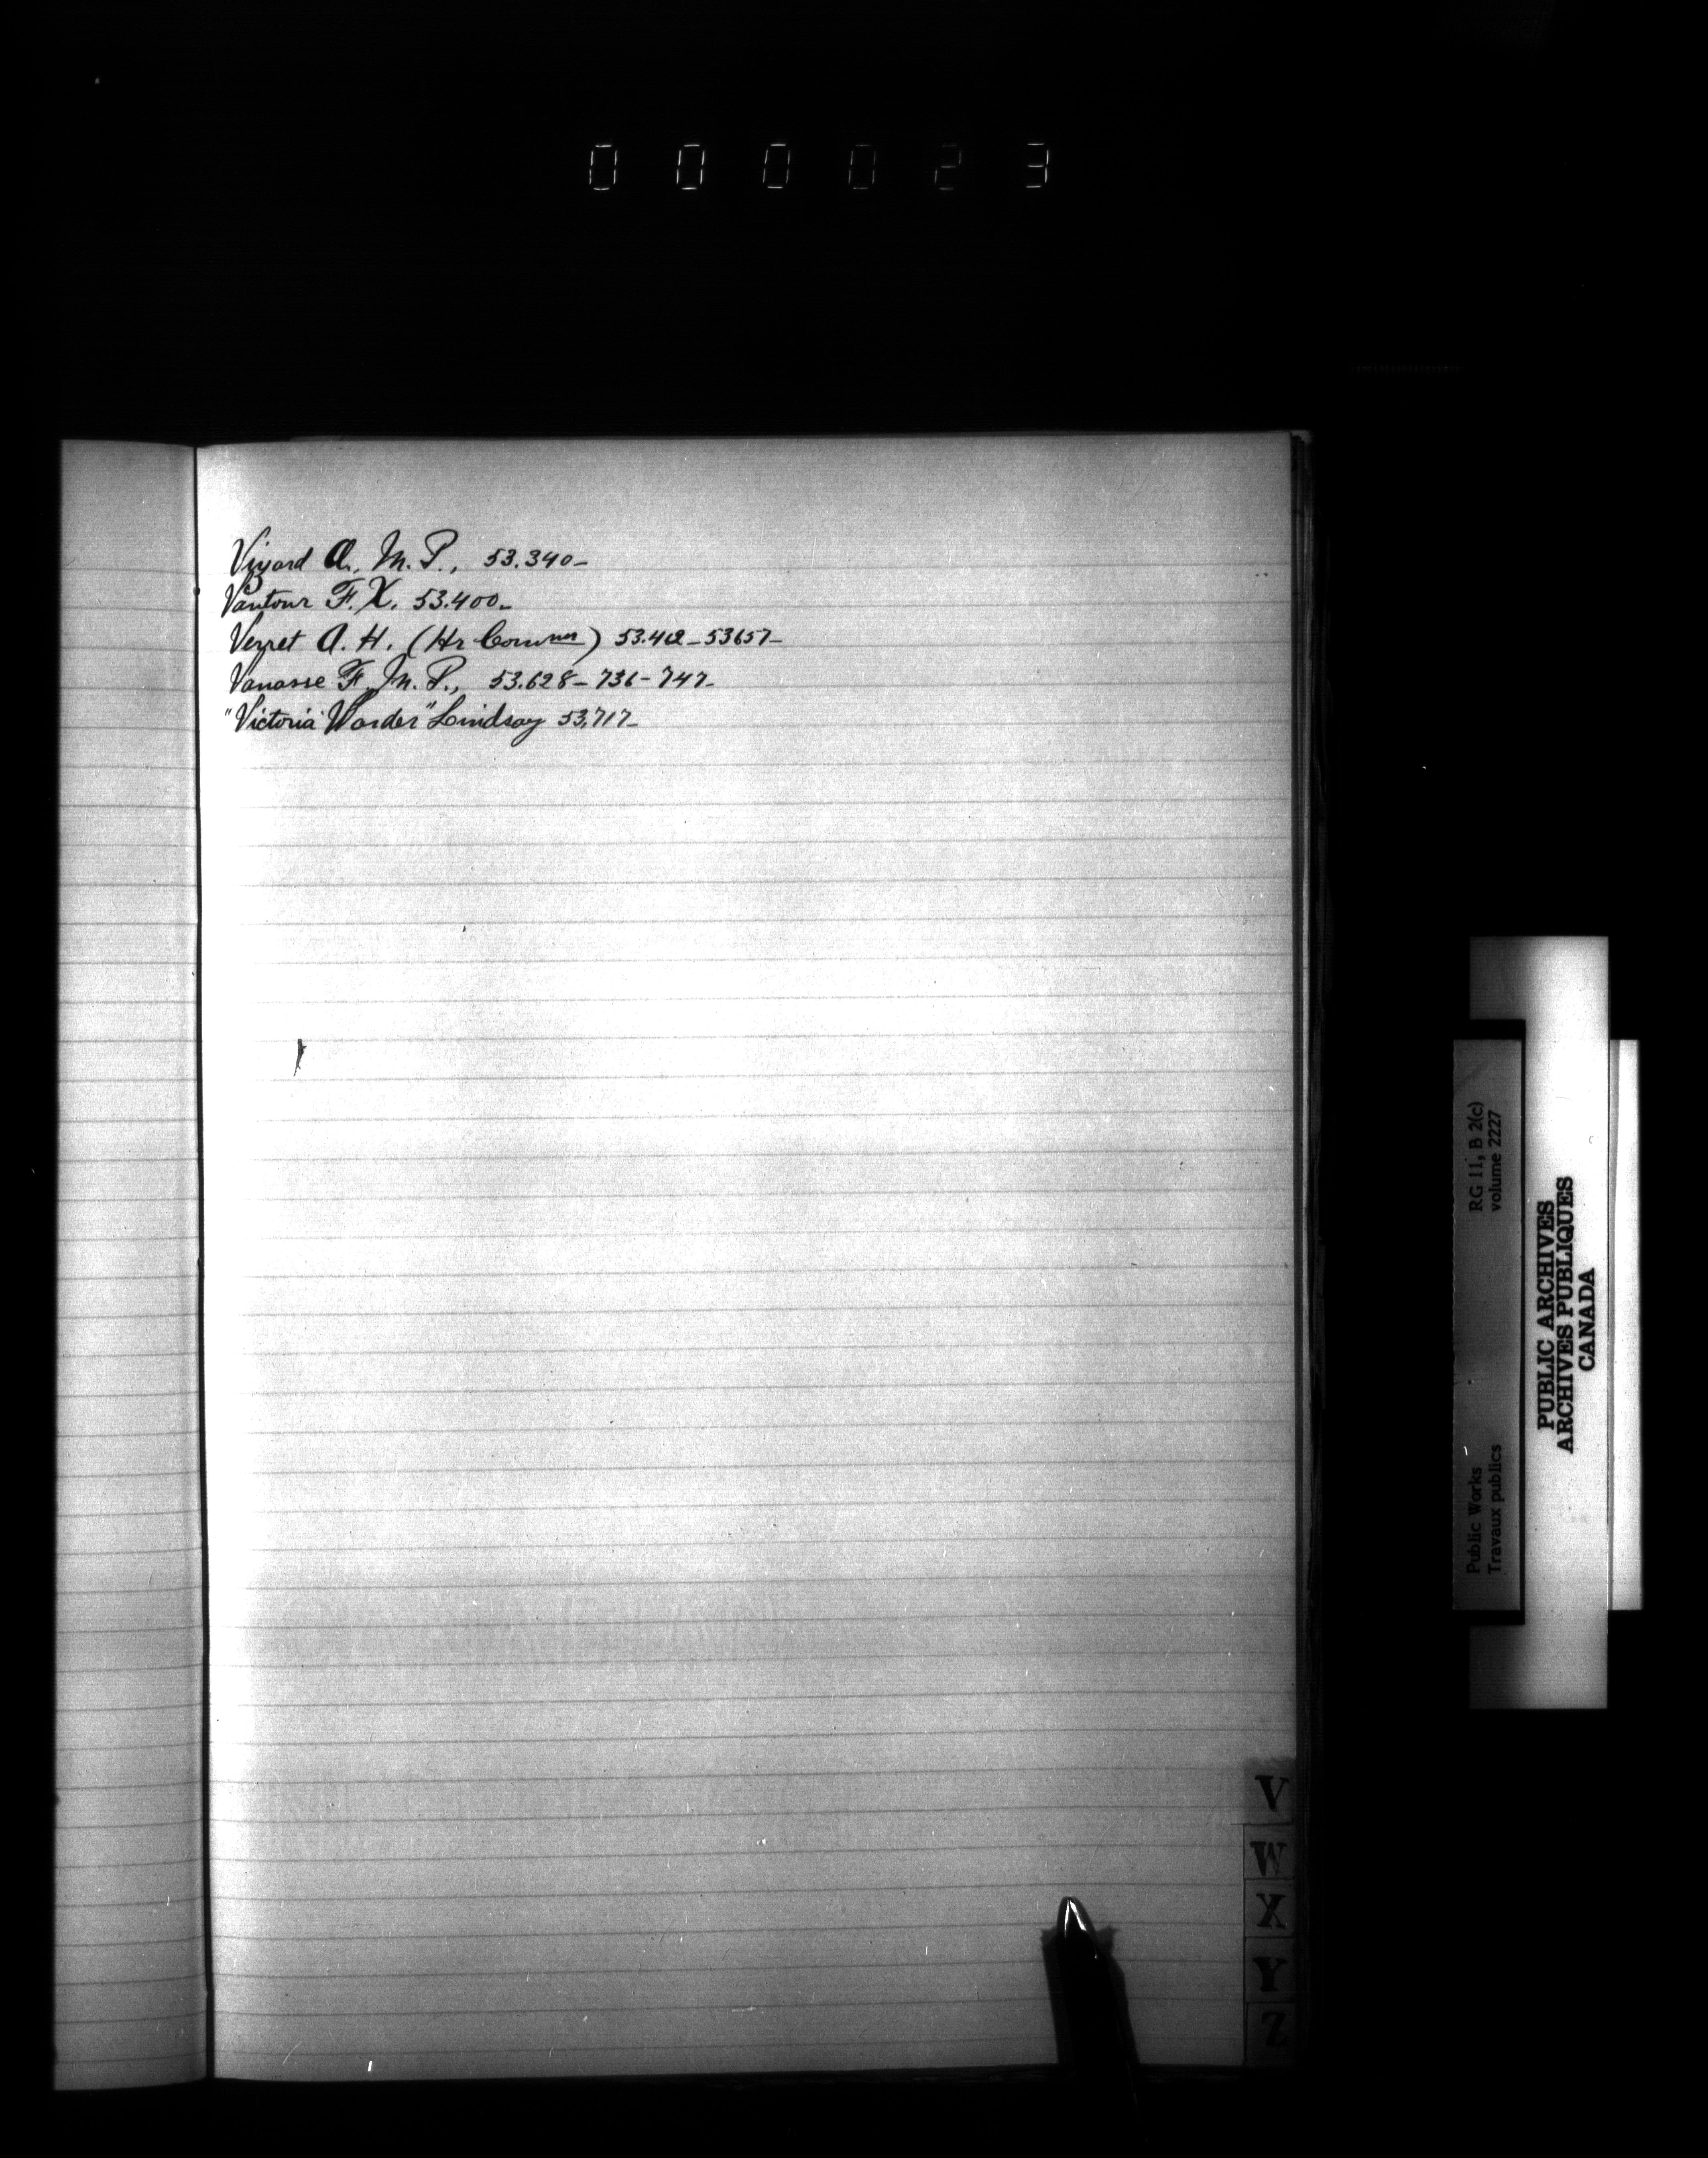 000023
Vinyard A., M.P., 53.340-
Vautour F.X. 53.400-
Verret A.H. (Hr Commr) 53.462-53657-
Vanasse F, M.P., 53.628-736-747-
"Victoria Warder" Lindsay 53,717-
V
W
X
Y
Z
RG 11, B 2(c)
volume 2227
Public Works
Travaux publics
PUBLIC ARCHIVES
ARCHIVES PUBLIQUES
CANADA